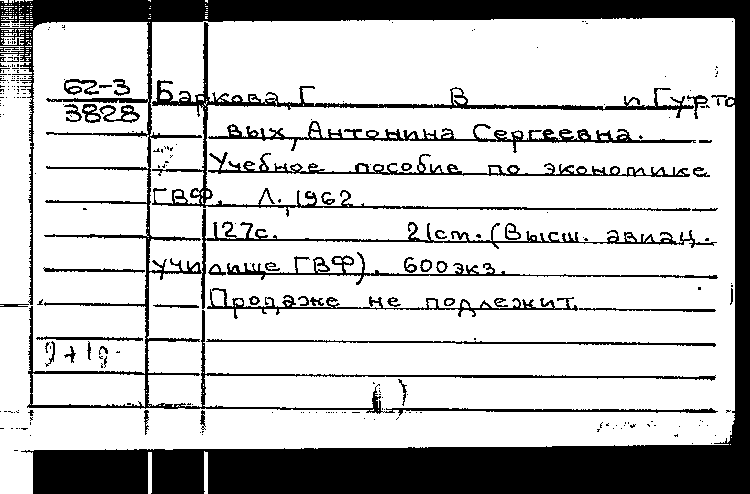 62-3
3828
Баркова, Г В и Гурто
вых, Антонина Сергеевна.
Учебное пособие по экономике
ГВФ. Л., 1962.
127с. 21см. (Высш. авиац.
училище ГВФ). 600экз.
Продаже не подлежит.